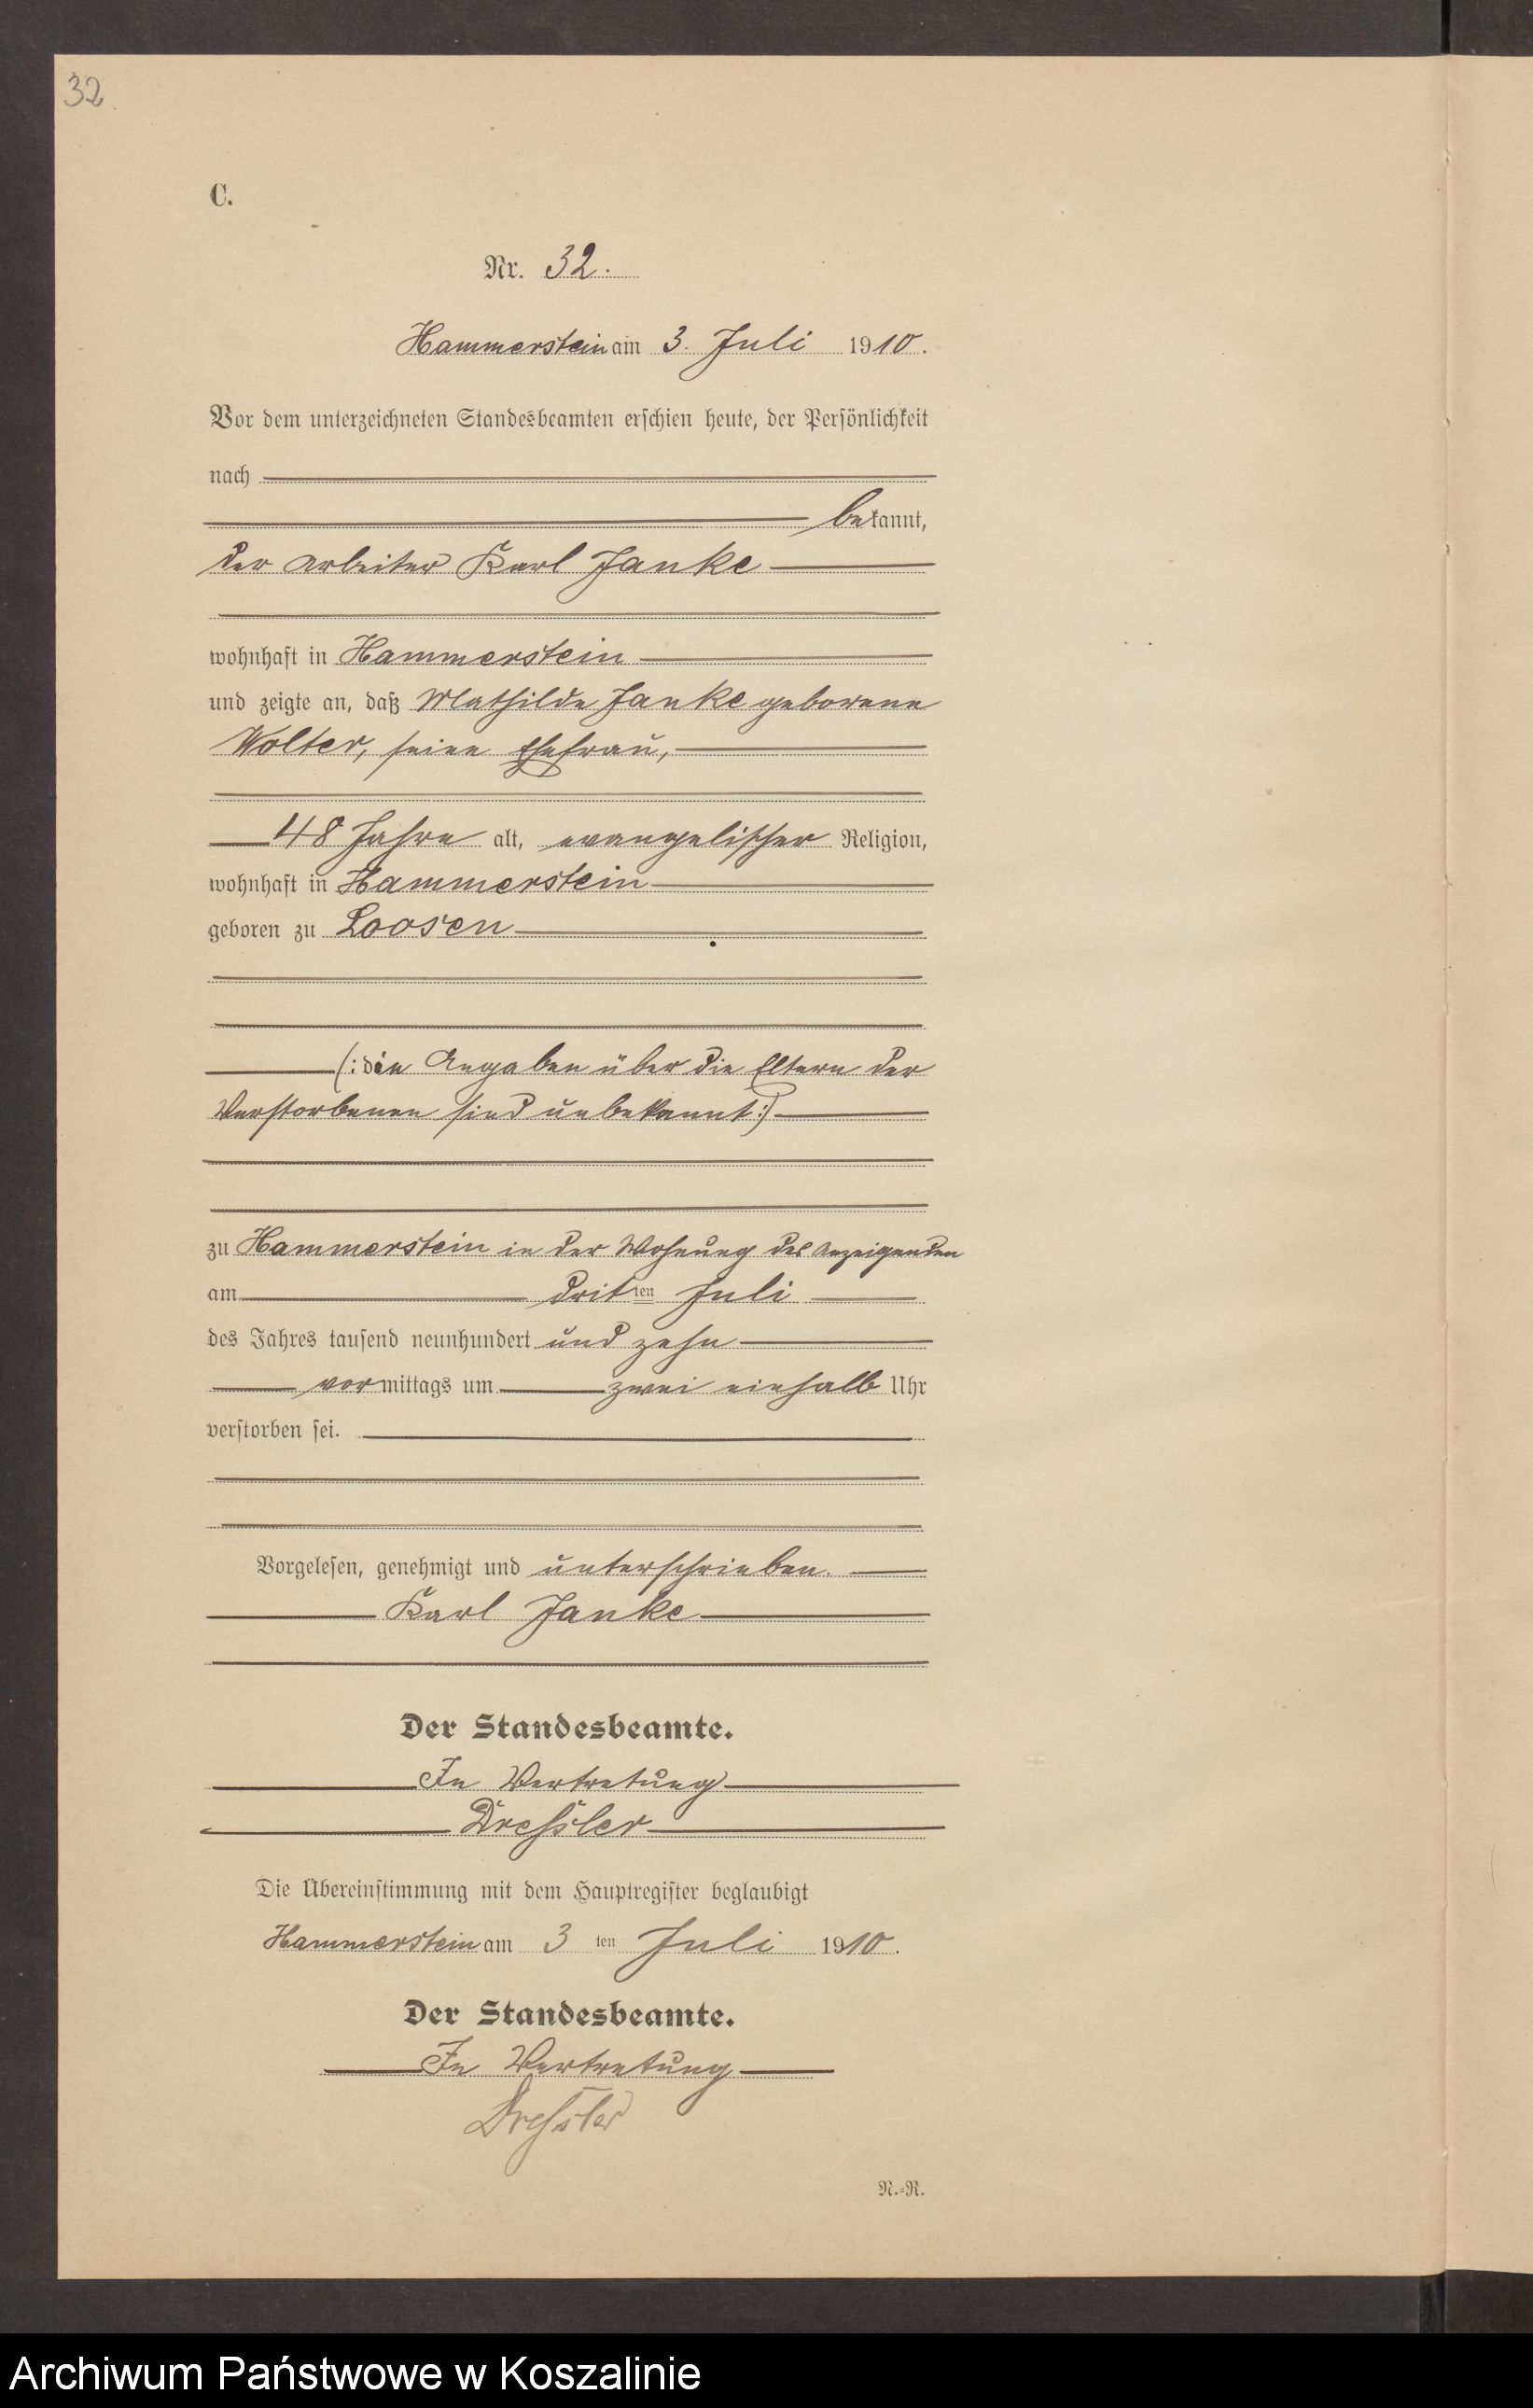 32
C.
Nr. 32.
Hammerstein am 3. Juli 1910.
Vor dem unterzeichneten Standesbeamten erschien heute, der Persönlichkeit
nach
bekannt,
der Arbeiter Karl Janke
wohnhaft in Hammerstein
und zeigte an, daß Mathilde Janke geborene
Wolter, seine Ehefrau,
48 Jahre alt, evangelischer Religion,
wohnhaft in Hammerstein
geboren zu Loosen
(: die Angaben über die Eltern der
Verstorbenen sind unbekannt :)
zu Hammerstein in der Wohnung des Anzeigenden
am dritten Juli
des Jahres tausend neunhundert und zehn
vormittags um zwei einhalb Uhr
verstorben sei.
Vorgelesen, genehmigt und unterschrieben.
Karl Janke
Der Standesbeamte.
In Vertretung
Dressler
Die Übereinstimmung mit dem Hauptregister beglaubigt
Hammerstein am 3 ten Juli 1910.
Der Standesbeamte.
In Vertretung
Dressler
N.=R.
Archiwum Państwowe w Koszalinie